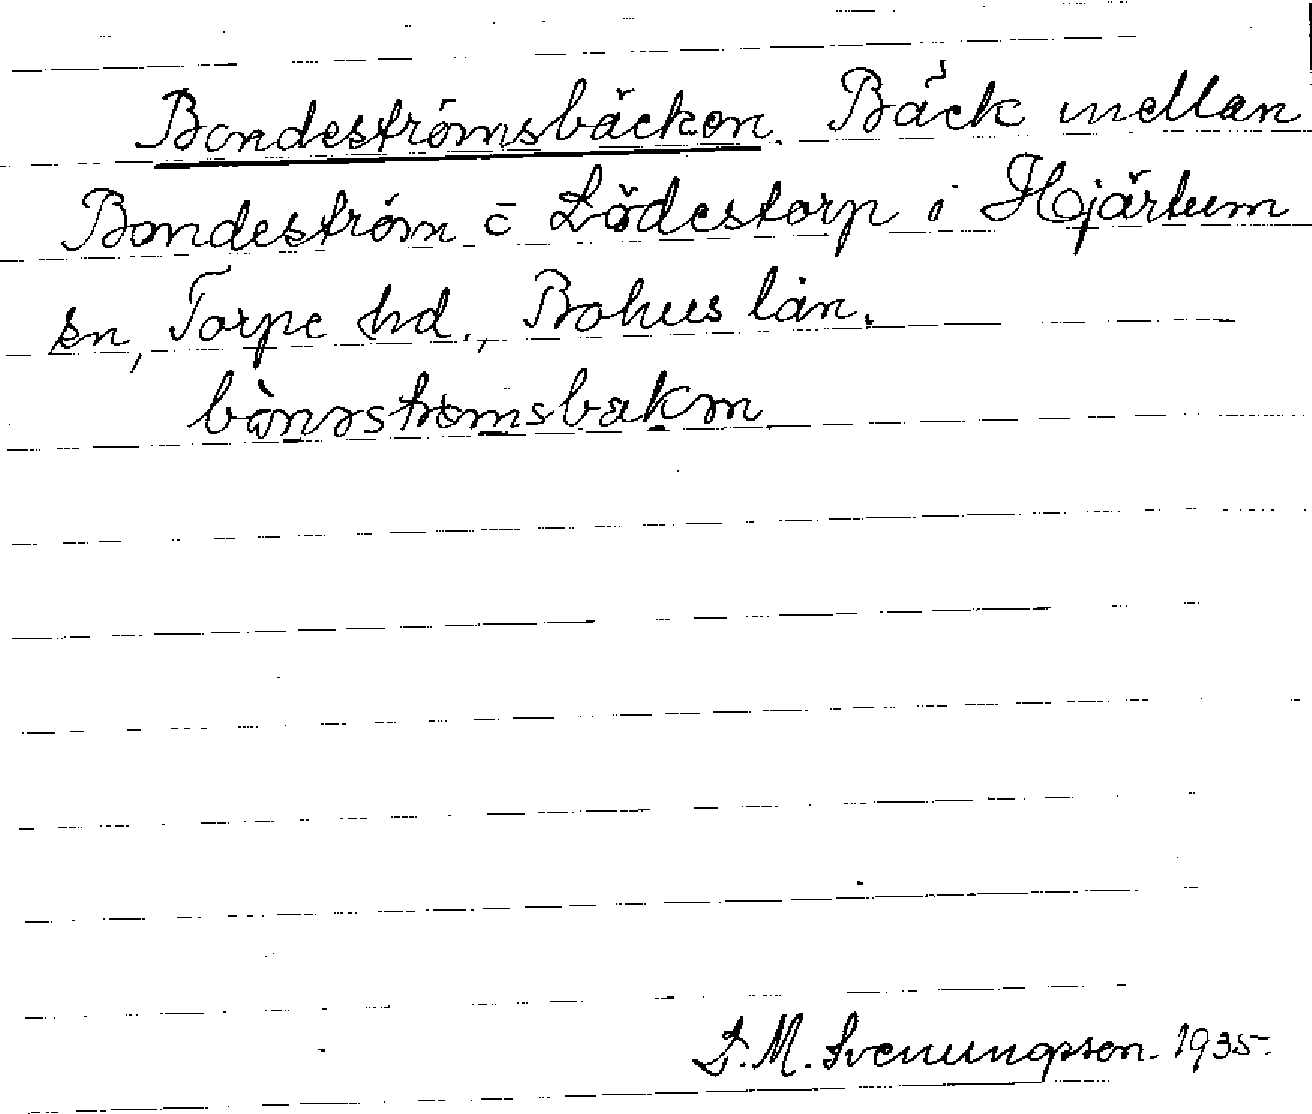 Bondeströmsbäcken. Bäck mellan
Bondeström o Lödestorp i Hjärtum
sn, Torpe hd., Bohus län.
bònnstrømsbækən
S. M. Svenungsson. 1935.